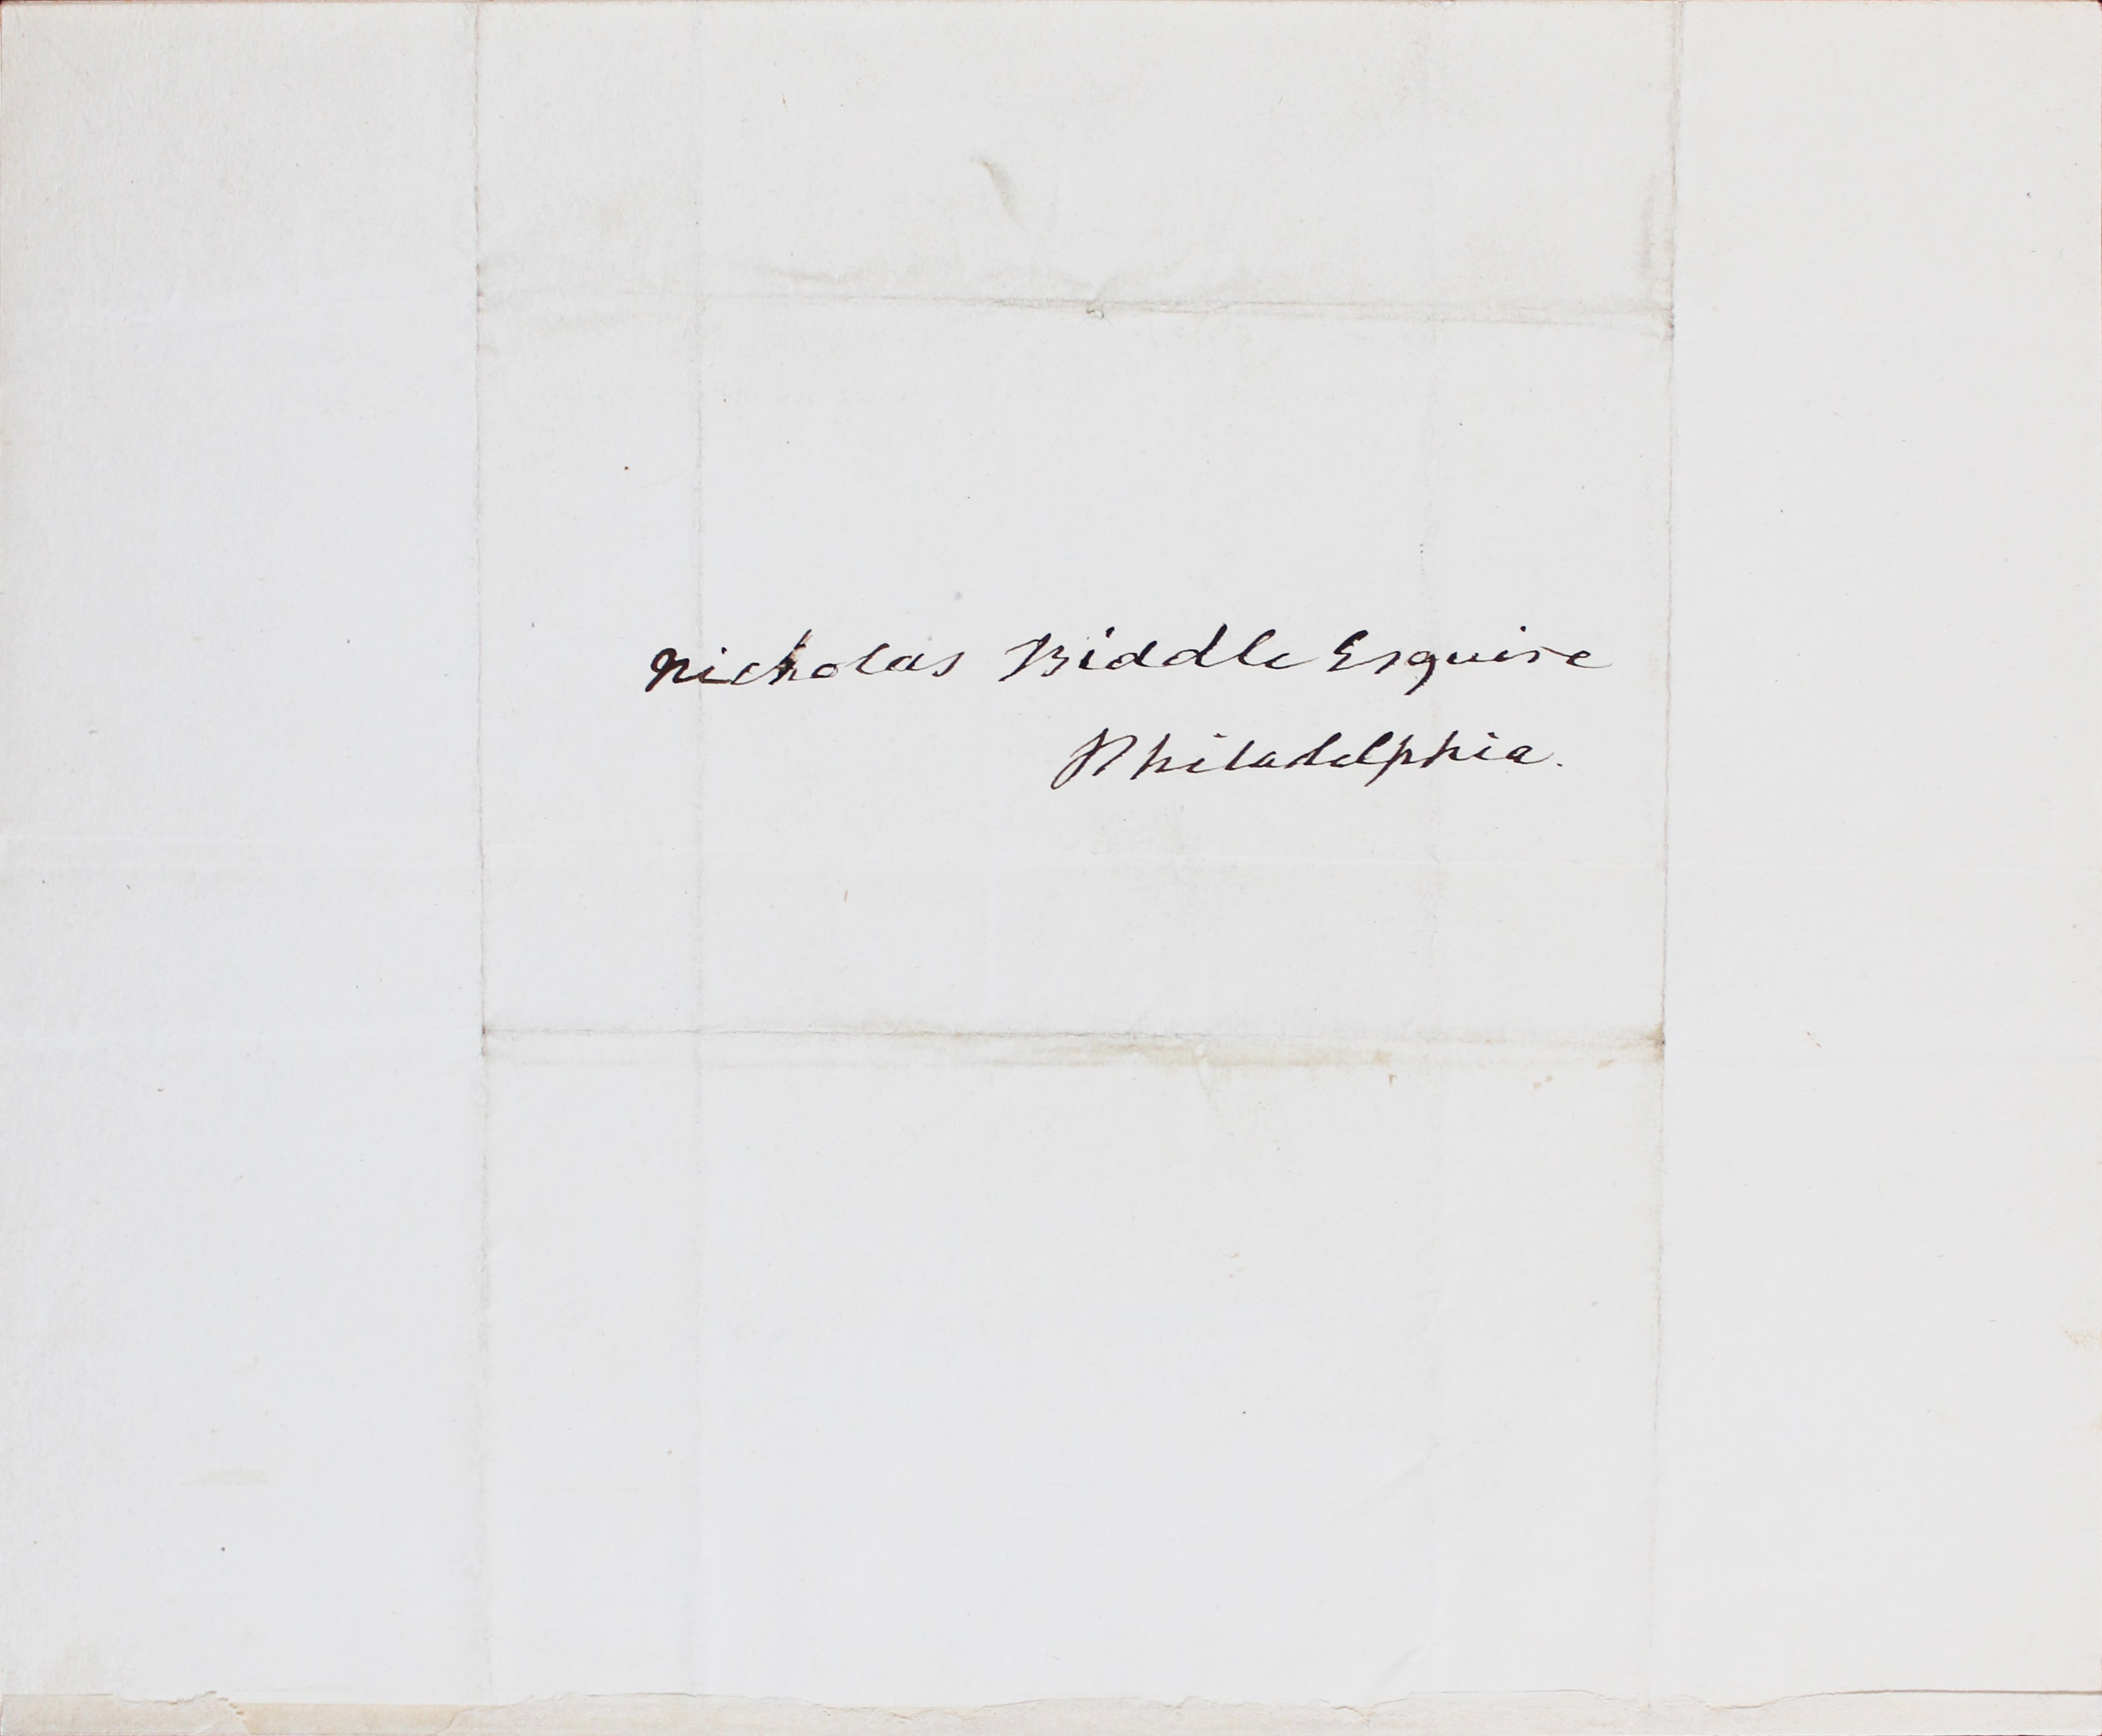 Nicholas Biddle Esquire
Philadelphia.